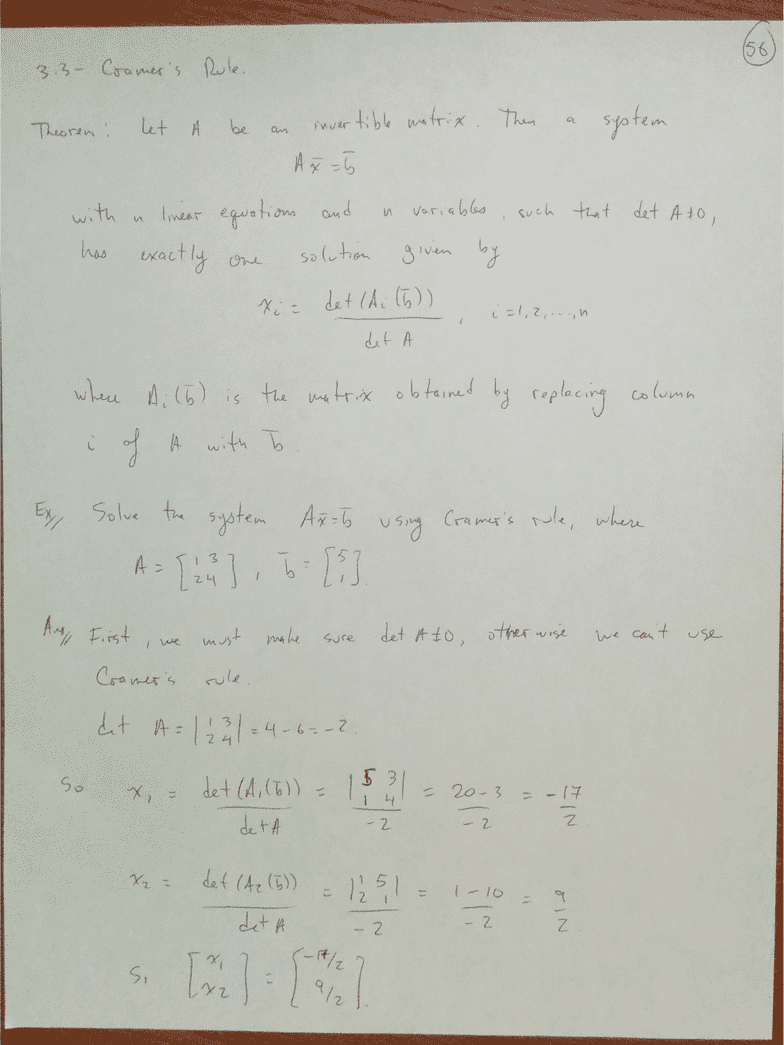 56
3.3- Cramer's Rule.
Theorem: Let A be an invertible matrix. Then a system
Ax̄ = b̄
with n linear equations and n variables, such that det A≠0,
has exactly one solution given by
xᵢ = det(Aᵢ(b̄)) / det A , i=1,2,...,n
where Aᵢ(b̄) is the matrix obtained by replacing column
i of A with b̄
Ex// Solve the system Ax̄=b̄ using Cramer's rule, where
A = [1 3; 2 4], b̄ = [5; 1].
Ans// First, we must make sure det A≠0, otherwise we can't use
Cramer's rule.
det A = |1 3; 2 4| = 4-6 = -2.
So x₁ = det(A₁(b̄)) / det A = |5 3; 1 4| / -2 = 20-3 / -2 = -17 / 2.
x₂ = det(A₂(b̄)) / det A = |1 5; 2 1| / -2 = 1-10 / -2 = 9 / 2
So [x₁; x₂] = [-17/2; 9/2].